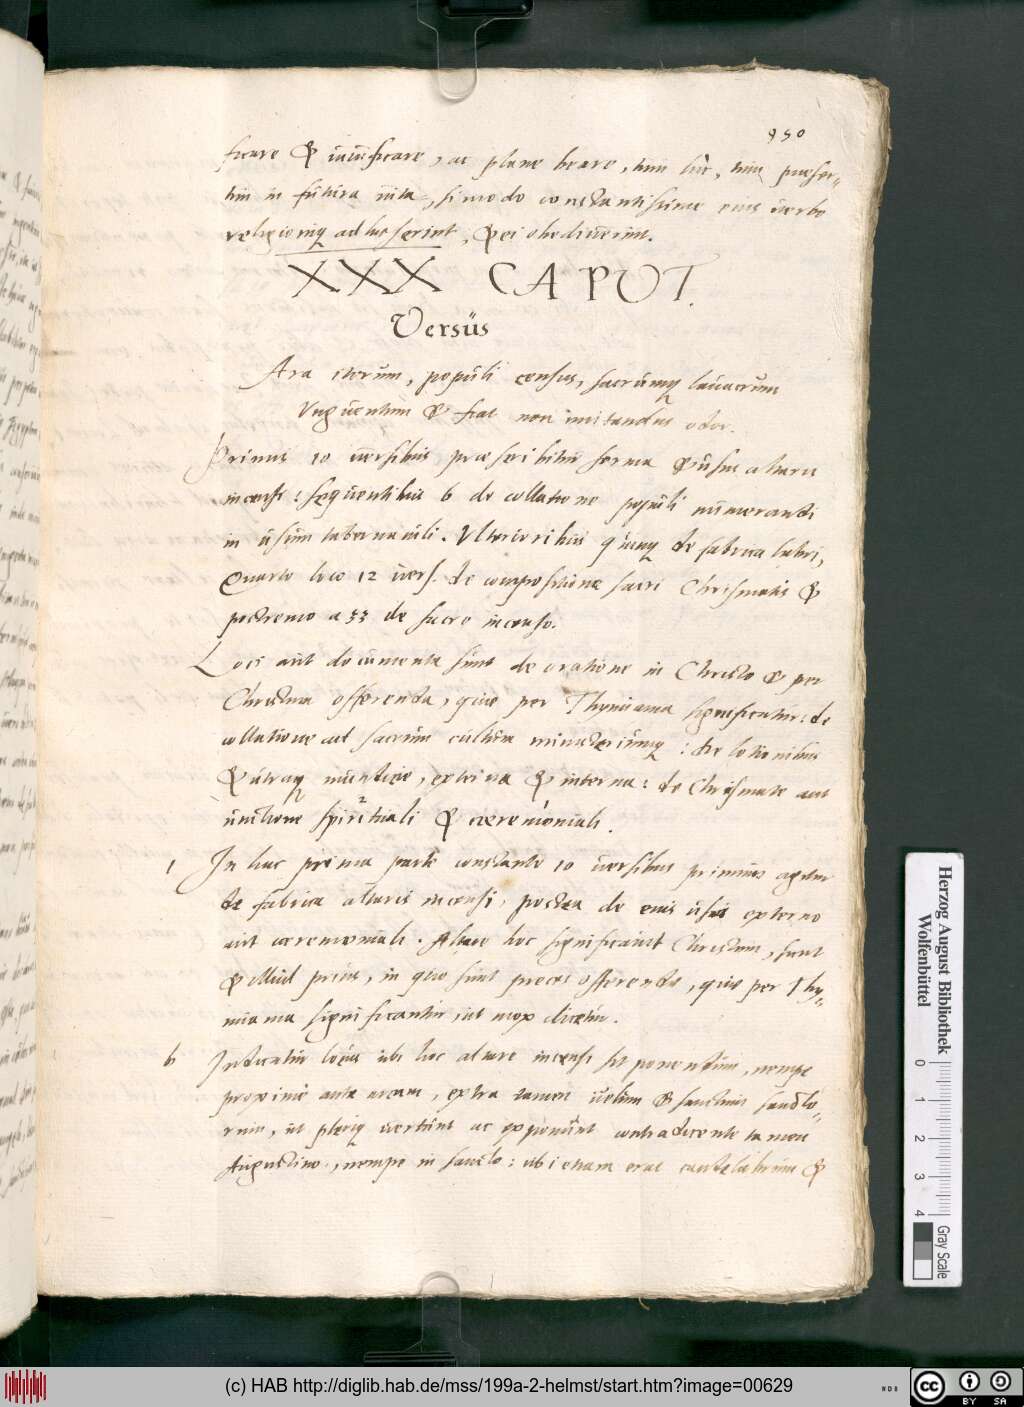 950
ficare & iustificare, ac plane beare, tum hic, tum praeser-
tim in futura uita, si modo constantissime eius uerbo
religioniq adhaeserint, & ei obediuerint.
XXX CAPUT.
Versus
Ara iterum, populi census, sacrumq lauacrum
Vnguentum & fiat non imitandus odor.
Primis 10 uersibus praescribitur forma & usus altaris
incensi: sequentibus 6 de collatione populi numerandi
in usum tabernaculi. Ulterioribus quinq de fabrica labri,
Quarto loco 12 uers. de compositione sacri Chrismatis &
postremo a 33 de sacro incenso.
Loci aut documenta sunt de oratione in Christo & per
Christum offerenda, quae per Thymiama significatur: de
collatione ad sacrum cultum ministeriumq: de lotionibus
& utraq munditie, externa & interna: de Chrismate aut
unctione spirituali & caeremoniali.
1 In hac prima parte constante 10 uersibus primum agitur
de fabrica altaris incensi, postea de eius usu externo
aut caeremoniali. Altare hoc significauit Christum, sicut
& illud prius, in quo sunt preces offerendae, quae per Thy-
miama significantur, ut mox dicetur.
6 Indicatur locus ubi hoc altare incensi sit ponendum, nempe
proxime ante arcam, extra tamen uelum & sanctum sancto-
rum, ut pleriq uertunt ac exponunt contradicente tamen
Augustino, nempe in sancto: ubi etiam erat candelabrum &
Herzog August Bibliothek
Wolfenbüttel
0 1 2 3 4
Gray Scale
(c) HAB http://diglib.hab.de/mss/199a-2-helmst/start.htm?image=00629
NDB
cc
BY SA